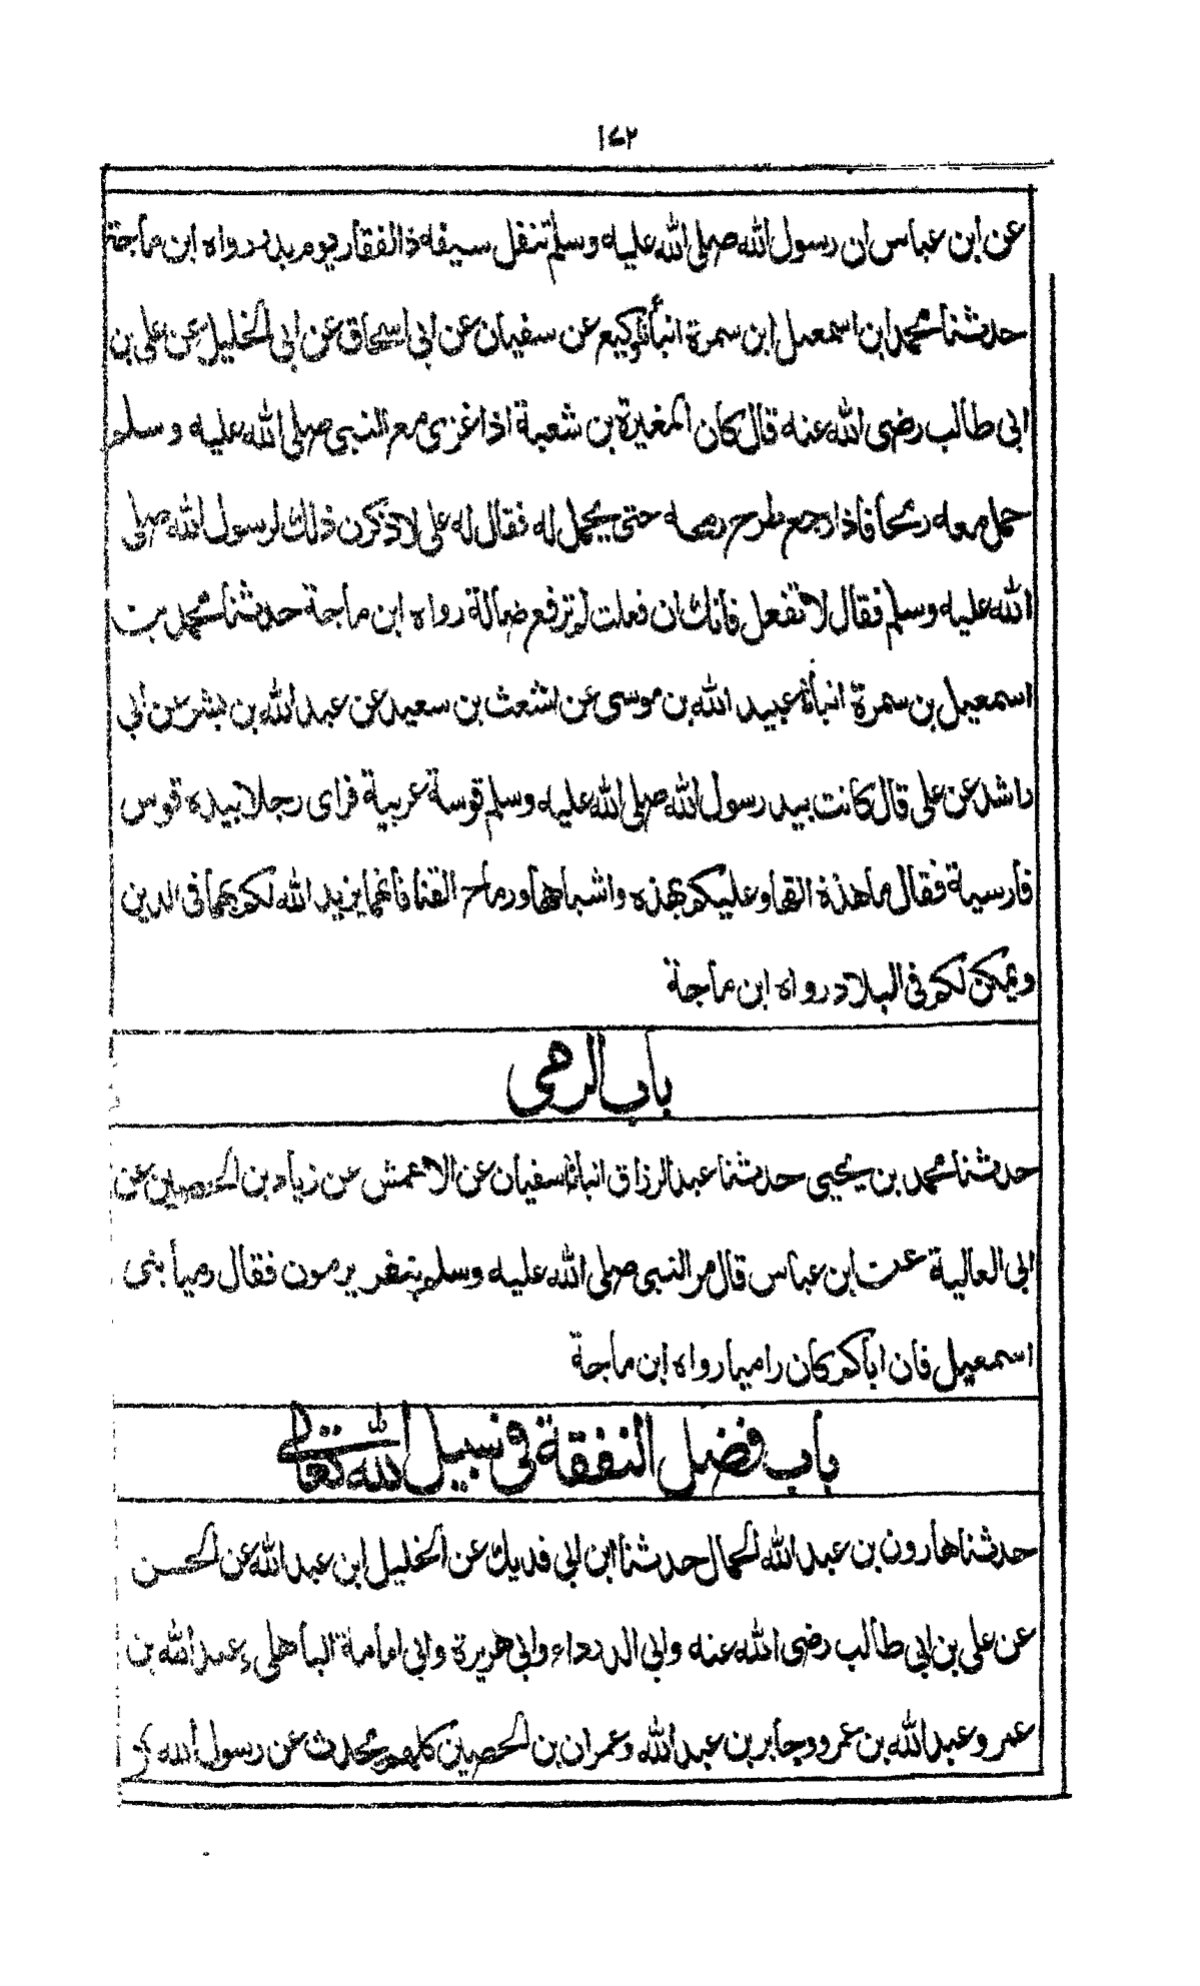 ١٧٢
عن ابن عباس ان رسول الله صلى الله عليه وسلم تنفل سيفه ذا الفقار يوم بدر رواه ابن ماجة
حدثنا محمد ابن اسمعيل ابن سمرة انبأنا وكيع عن سفيان عن ابى اسحاق عن ابى الخليل عن على بن
ابى طالب رضى الله عنه قال كان المغيرة بن شعبة اذا غزى مع النبى صلى الله عليه وسلم
حمل معه رمحا فاذا رجع طرح رمحه حتى يحمل له فقال له على لاذكرن ذلك لرسول الله صلى
الله عليه وسلم فقال لا تفعل فانك ان فعلت لم ترفع ضالة رواه ابن ماجة حدثنا محمد بن
اسمعيل بن سمرة انبأنا عبيد الله بن موسى عن اشعث بن سعيد عن عبد الله بن بشر عن ابى
راشد عن على قال كانت بيد رسول الله صلى الله عليه وسلم قوسة عربية فراى رجلا بيده قوس
فارسية فقال ما هذة القها وعليكم بهذه واشباهها ورماح القنا فانهما يزيد الله لكم بهما فى الدين
ويمكن لكم فى البلاد رواه ابن ماجة
باب الرمى
حدثنا محمد بن يحيى حدثنا عبد الرزاق انبأنا سفيان عن الاعمش عن زياد بن الحصين عن
ابى العالية عن ابن عباس قال مر النبى صلى الله عليه وسلم بنفر يرمون فقال رميا بنى
اسمعيل فان اباكم كان راميا رواه ابن ماجة
باب فضل النفقة فى سبيل الله تعالى
حدثنا هارون بن عبد الله الحمال حدثنا ابن ابى فديك عن الخليل ابن عبد الله عن الحسن
عن على بن ابى طالب رضى الله عنه وابى الدرداء وابى هريرة وابى امامة الباهلى وعبد الله بن
عمر وعبد الله بن عمرو وجابر بن عبد الله وعمران بن الحصين كلهم يحدث عن رسول الله